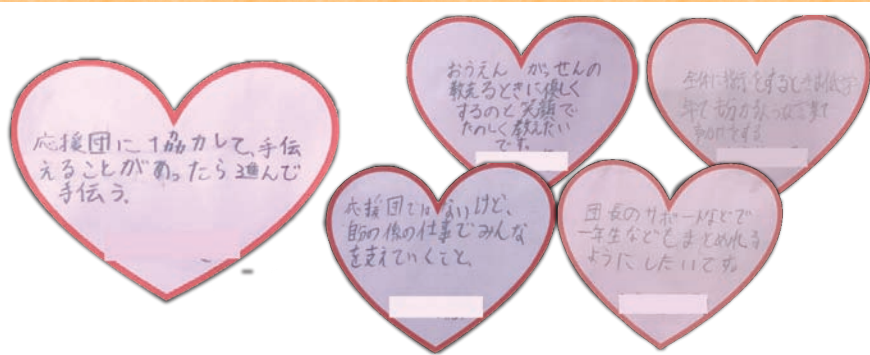 応援団に協力して、手伝
えることがあったら進んで
手伝う。
おうえん がっせんの
教えるときに優しく
するのと笑顔で
たのしく教えたい
です。
全体に指示をするときは低学
年でも分かるような言葉で
応援団ではないけど、
自分の係の仕事でみんな
を支えていくこと、
団長のサポートなどで
一年生などをまとめれる
ようにしたいです。